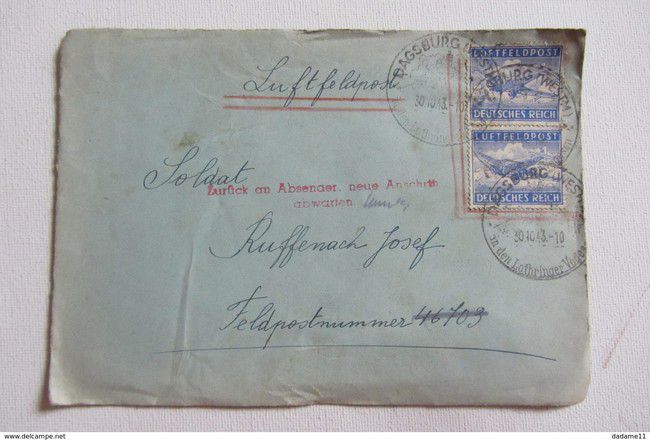 Luftfeldpost
LUFTFELDPOST
DEUTSCHES REICH
LUFTFELDPOST
DEUTSCHES REICH
DAGSBURG (WESTM)
30.10.43.-10
DAGSBURG (WESTM)
30.10.43.-10
in den Lothringer
Soldat
Zurück an Absender, neue Anschrift
abwarten
Ruffenach Josef
Feldpostnummer 46703
www.delcampe.net
dadame11